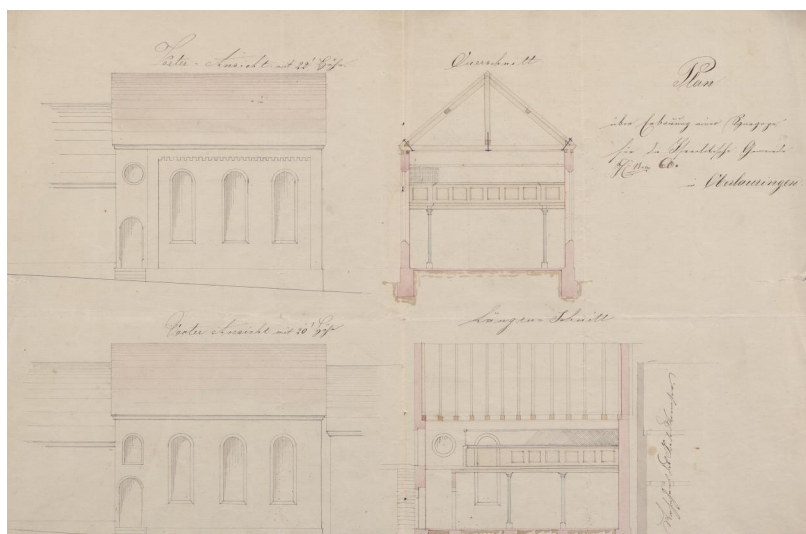 Seiten-Ansicht mit 22' Höhe.
Querschnitt
Plan
über Erbauung einer Synagoge
für die Israelitische Gemeinde
H. Nro. 60.
in Oberlauringen.
Seiten Ansicht mit 20' Höhe
Längen-Schnitt